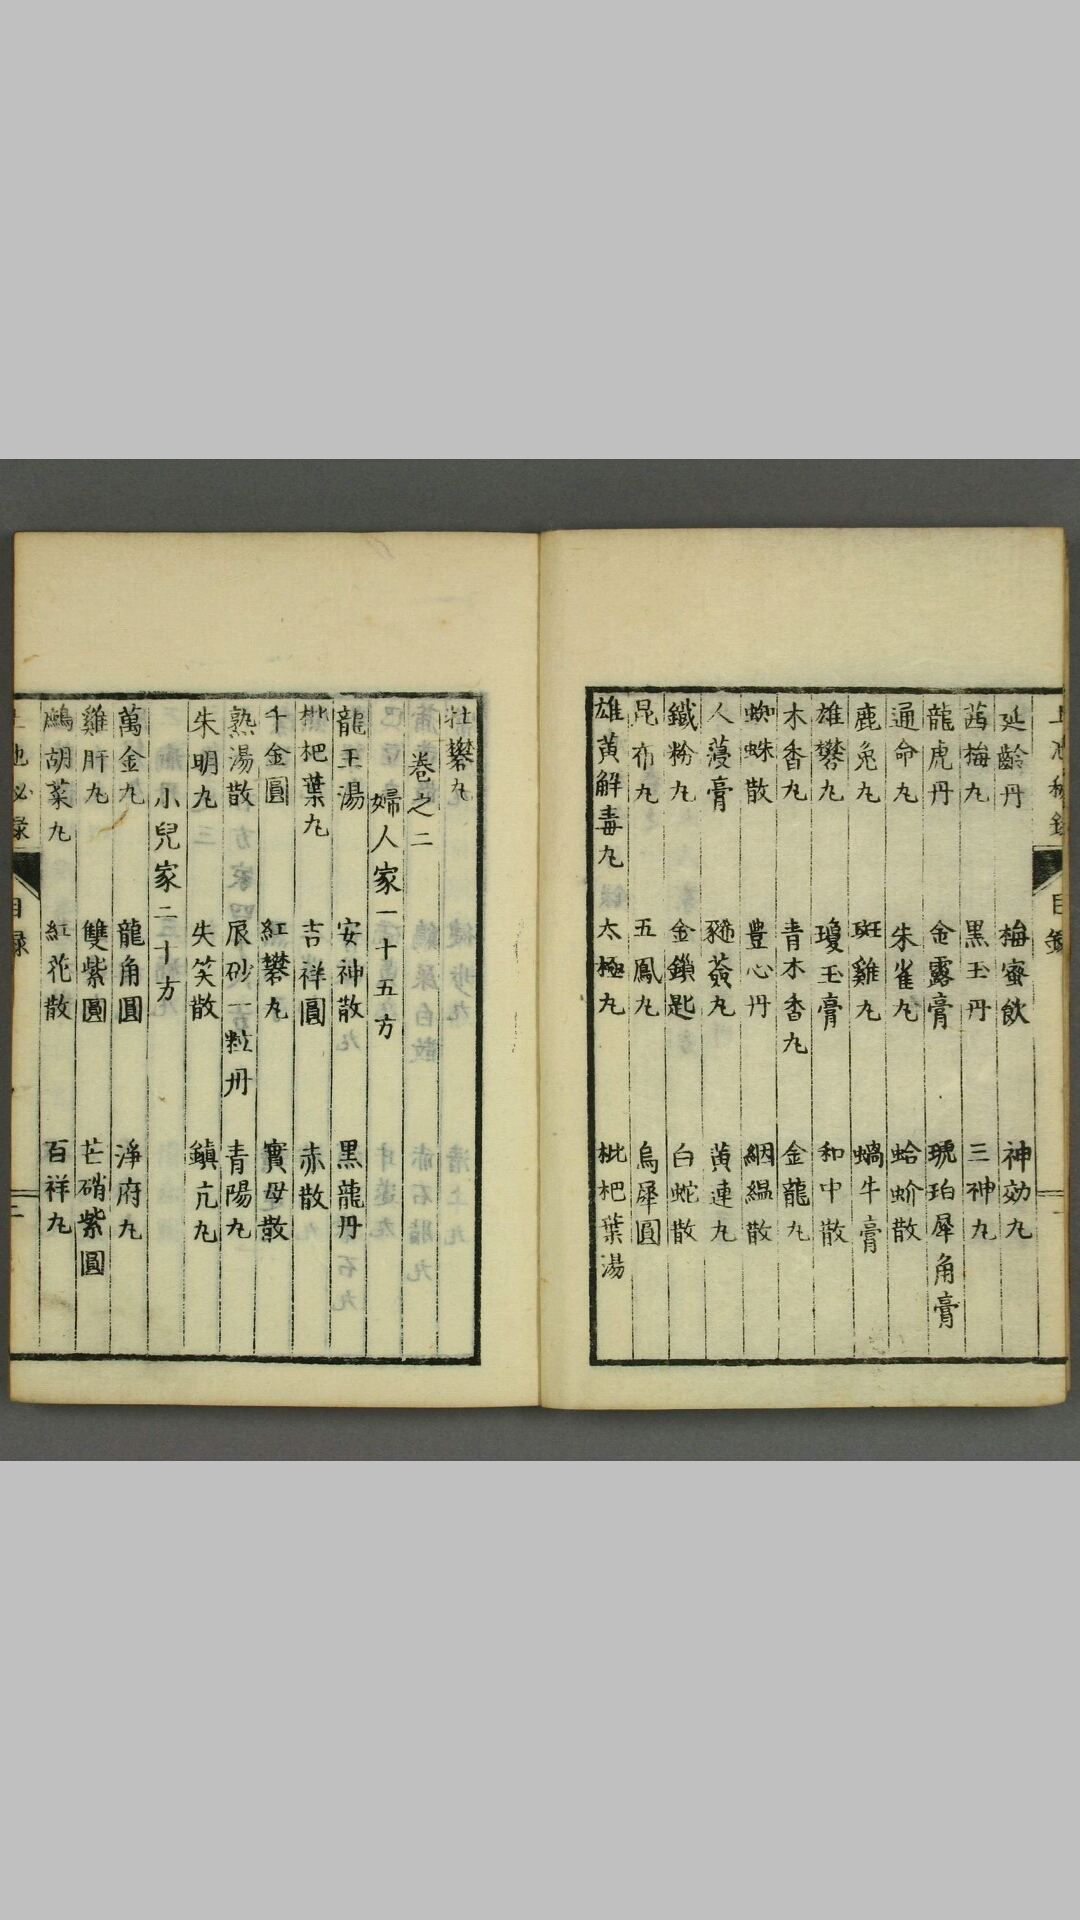 延齡丹 梅蜜飲 神効丸
茜梅丸 黒玉丹 三神丸
龍虎丹 金露膏 琥珀犀角膏
通命丸 朱雀丸 蛤蚧散
鹿兔丸 斑雞丸 蝸牛膏
雄礬丸 瓊玉膏 和中散
木香丸 青木香丸 金龍丸
蜘蛛散 豊心丹 絪縕散
人蓡膏 豨薟丸 黄連丸
鐵粉丸 金鎖匙 白蛇散
昆布丸 五鳳丸 烏犀圓
雄黄解毒丸 太極丸 枇杷葉湯
礬丸
卷之二
婦人家一十五方
龍王湯 安神散 黒龍丹
枇杷葉丸 吉祥圓 赤散
千金圓 紅礬丸 實母散
熟湯散 辰砂一粒丹 青陽丸
朱明丸 失笑散 鎮亢丸
小兒家二十方
萬金丸 龍角圓 淨府丸
雞肝丸 雙紫圓 芒硝紫圓
鷓胡菜丸 紅花散 百祥丸
目録
二